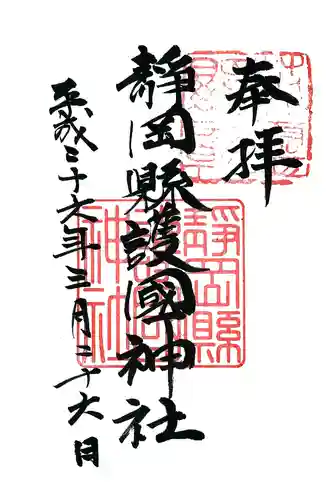 奉拝
靜岡縣護國神社
平成二十六年三月二十六日
靜岡縣護國神社